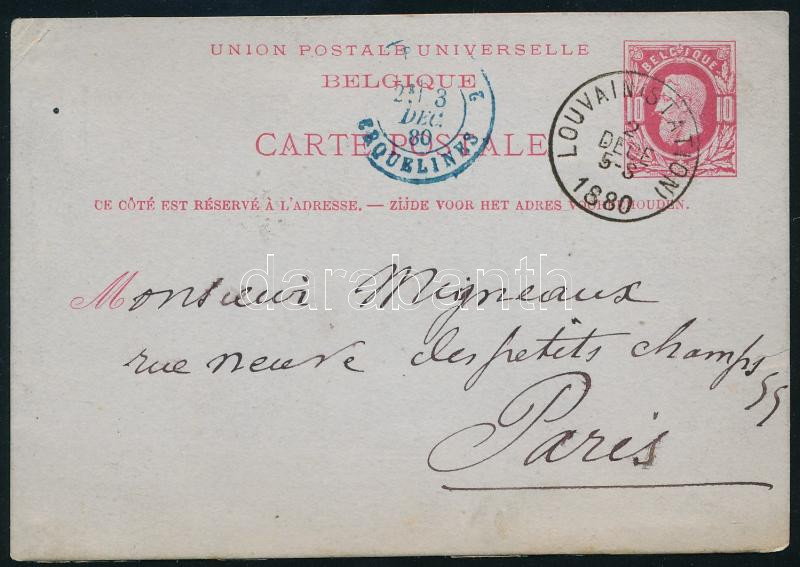 UNION POSTALE UNIVERSELLE
BELGIQUE
CARTE POSTALE
BELGIQUE
10 10
3
DEC.
80
ERQUELINES 2
LOUVAIN (STATION)
2
DECE
5-S
1880
CE CÔTÉ EST RÉSERVÉ À L'ADRESSE. — ZIJDE VOOR HET ADRES VOORBEHOUDEN.
darabanth
Monsieur Migneaux
rue neuve des petits champs
55
Paris